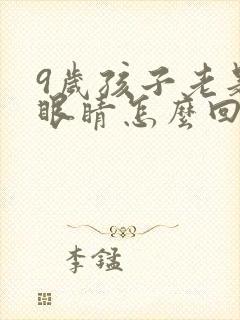 9歲孩子老是
眼睛怎麼回
李錳